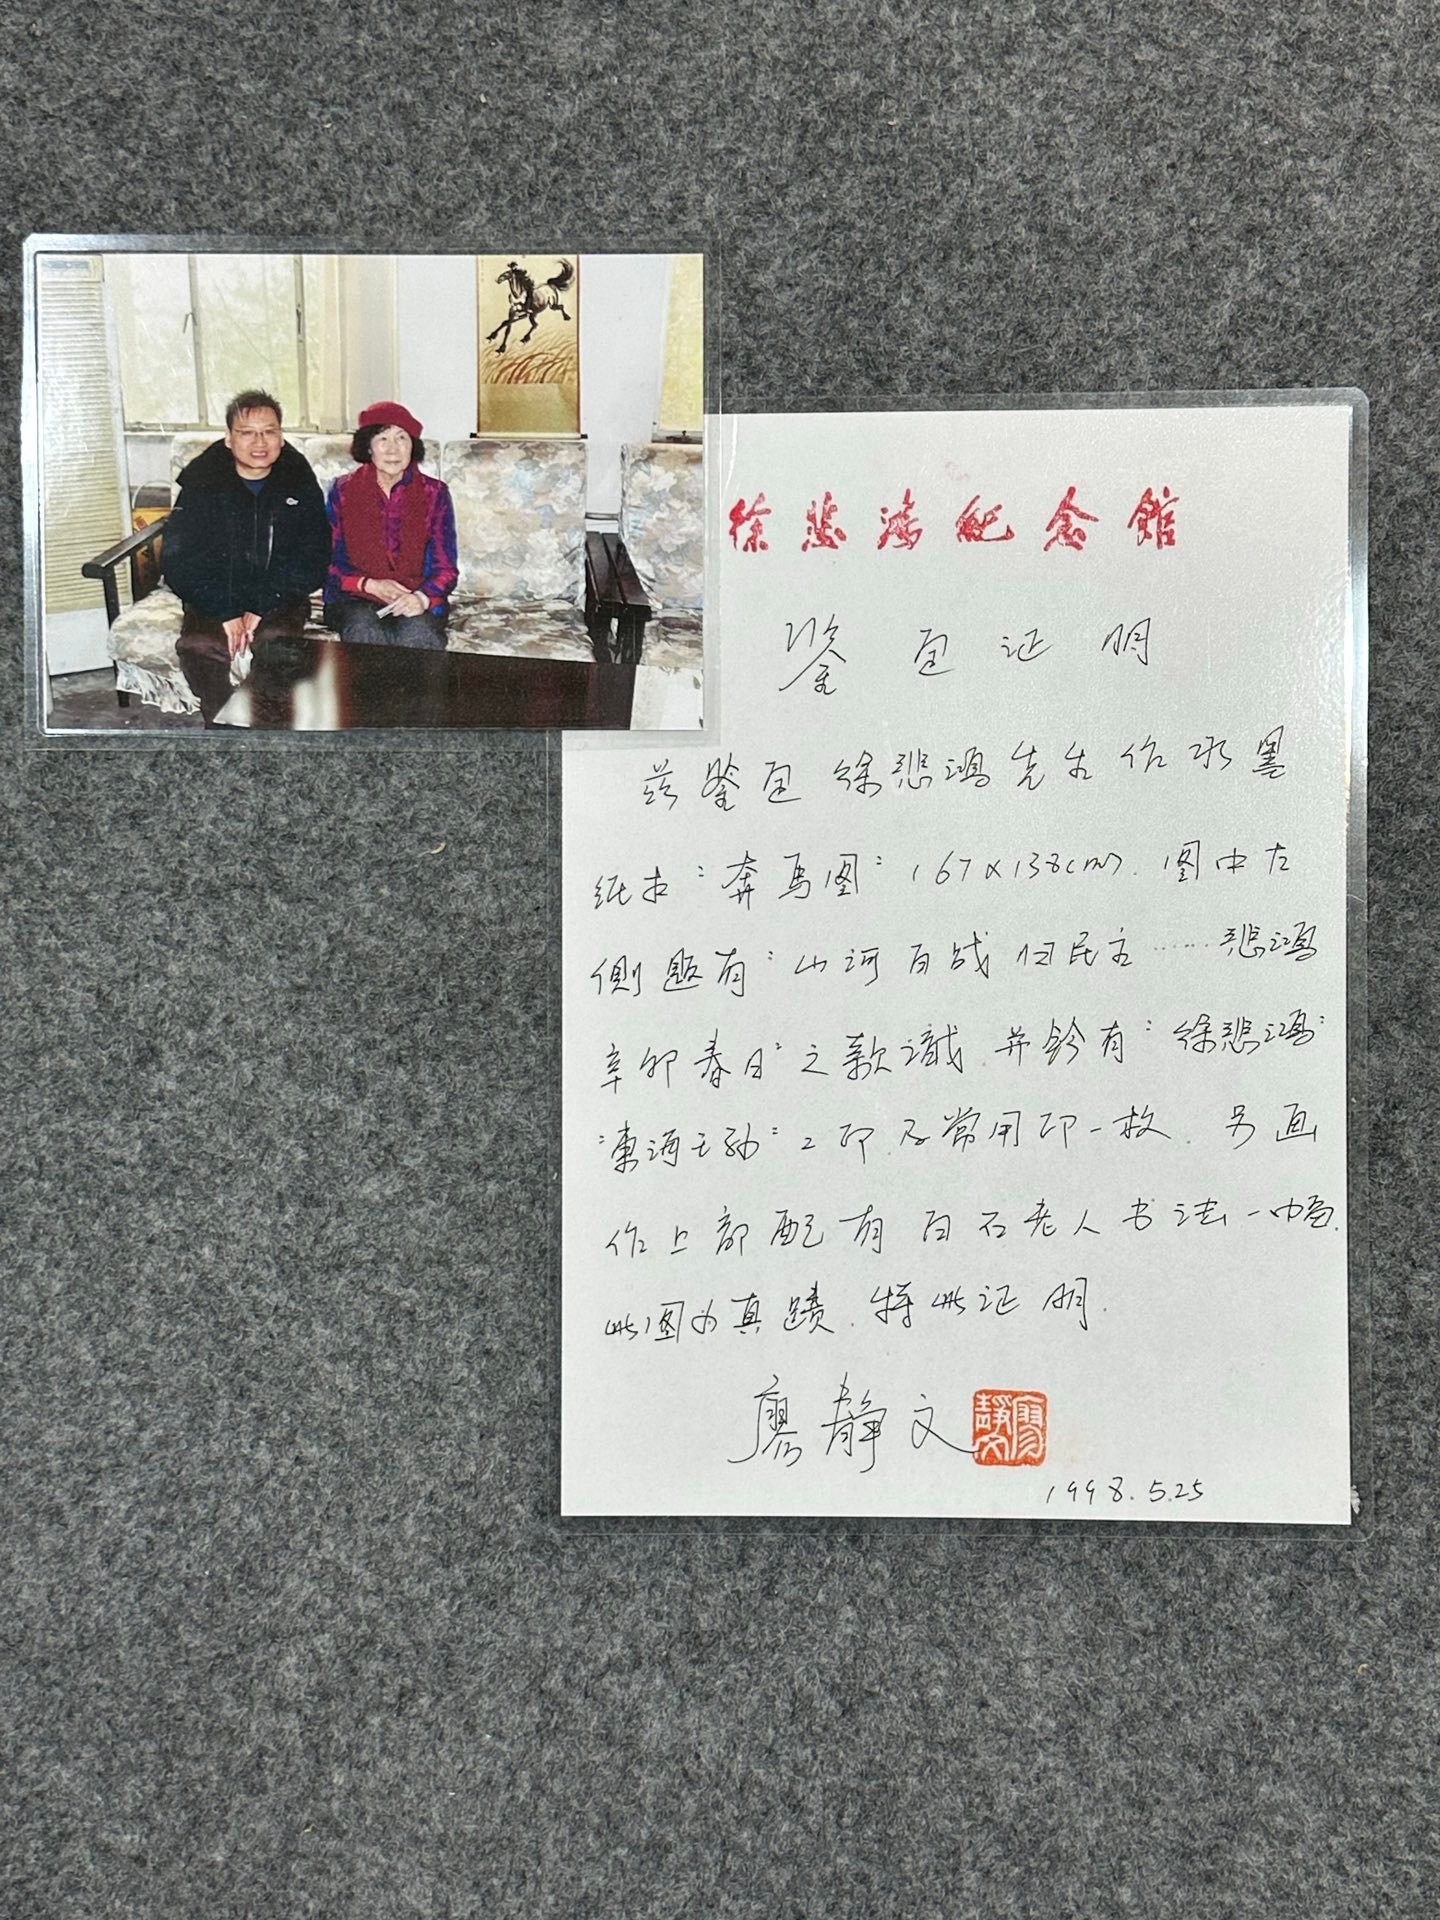 徐悲鸿纪念馆
鉴定证明
兹鉴定徐悲鸿先生作水墨
纸本"奔马图"167x138cm.图中左
侧题有"山河百战归民主……悲鸿
辛卯春日"之款识.并钤有"徐悲鸿"
"东海王孙"二印及常用印一枚.另画
作上部配有白石老人书法一幅.
此图为真蹟.特此证明.
廖静文
廖靜文
1998.5.25